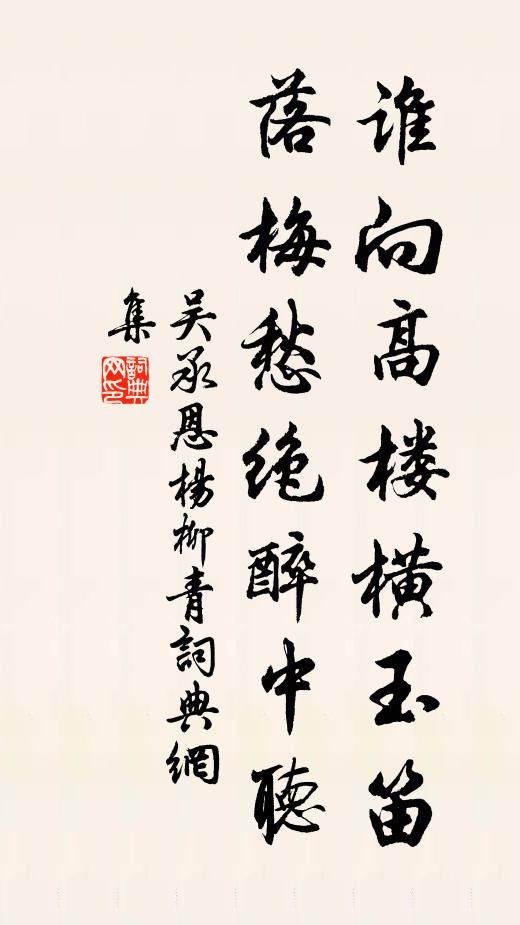 谁向高楼横玉笛
落梅愁绝醉中聽
吴承恩楊柳青詞典網
集
詞典网印